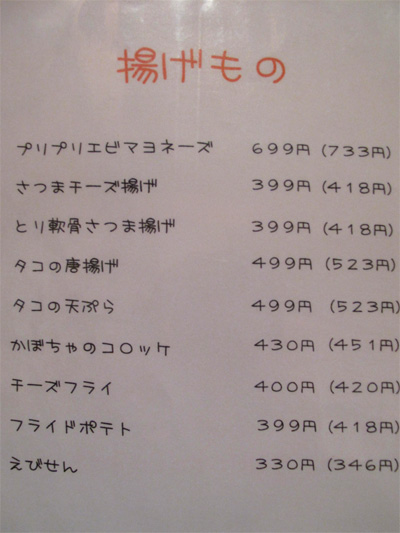 揚げもの
プリプリエビマヨネーズ 699円 (733円)
さつまチーズ揚げ 399円 (418円)
とり軟骨さつま揚げ 399円 (418円)
タコの唐揚げ 499円 (523円)
タコの天ぷら 499円 (523円)
かぼちゃのコロッケ 430円 (451円)
チーズフライ 400円 (420円)
フライドポテト 399円 (418円)
えびせん 330円 (346円)